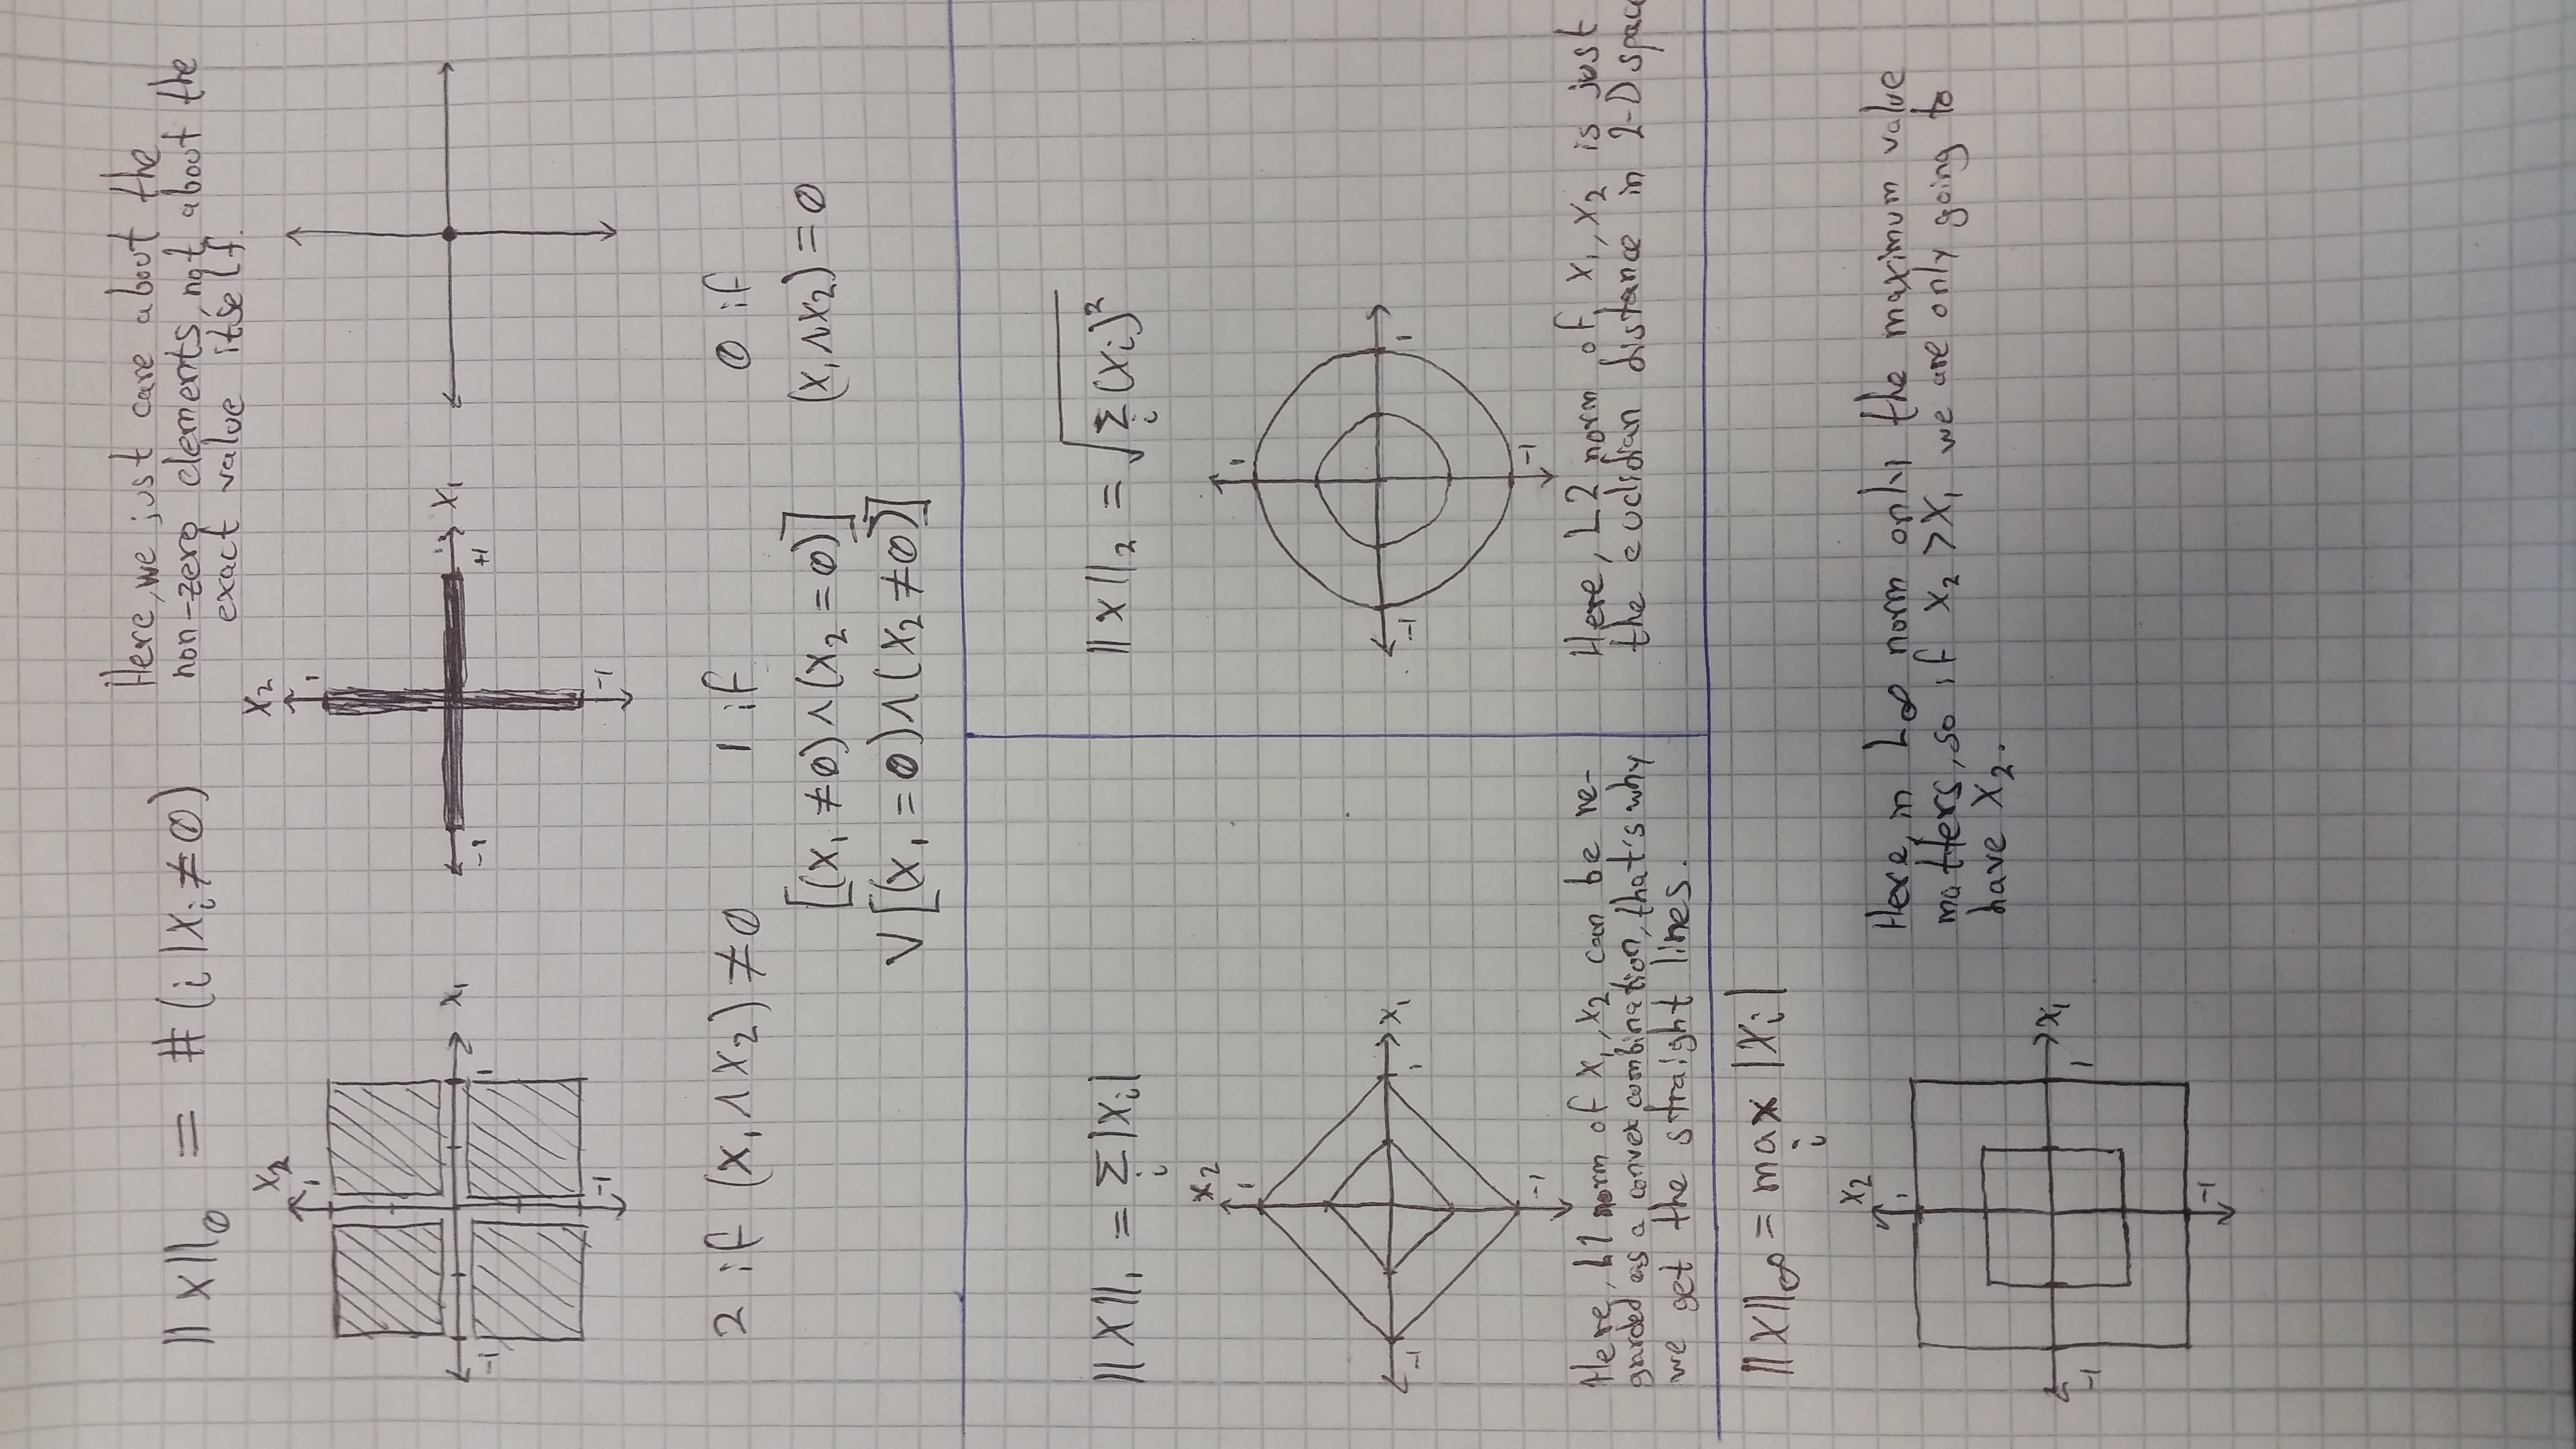 ||x||₀ = #(i | xᵢ ≠ 0)
Here, we just care about the
non-zero elements, not about the
exact value itself.
x₂
1
-1
1
x₁
-1
x₂
1
-1
+1
x₁
-1
2 if (x₁ ∧ x₂) ≠ 0
1 if
[(x₁ ≠ 0) ∧ (x₂ = 0)]
∨ [(x₁ = 0) ∧ (x₂ ≠ 0)]
0 if
(x₁ ∧ x₂) = 0
||x||₁ = Σ |xᵢ|
i
x₂
1
-1
1
x₁
-1
Here, L1 norm of x₁, x₂ can be re-
garded as a convex combination, that's why
we get the straight lines.
||x||₂ = √Σ (xᵢ)²
i
1
-1
1
-1
Here, L2 norm of x₁ x₂ is just
the euclidian distance in 2-D spac
||x||∞ = max |xᵢ|
i
x₂
1
-1
1
x₁
-1
Here, in L∞ norm only the maximum value
matters, so if x₂ > x₁ we are only going to
have x₂.